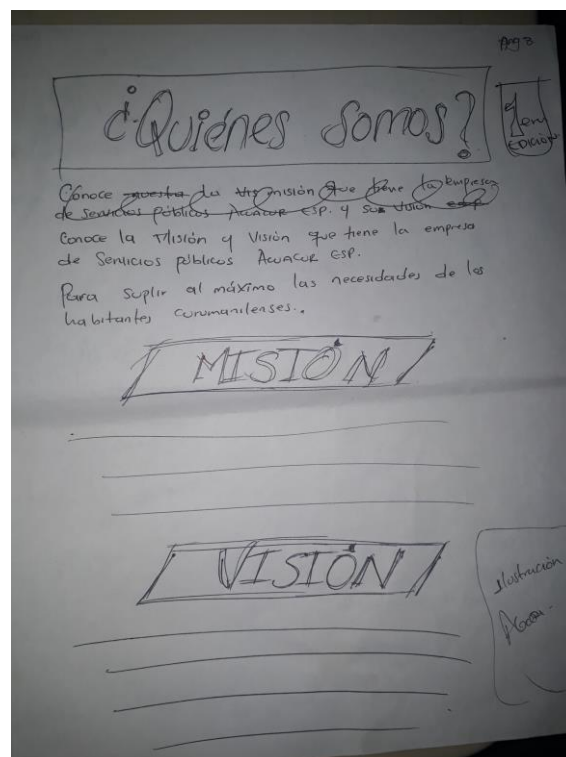 Pag 3
¿Quiénes Somos?
1era
EDICIÓN
Conoce nuestra la misión que tiene la empresa
de servicios públicos ACUACUR ESP. y su visión
Conoce la Misión y Visión que tiene la empresa
de Servicios públicos ACUACUR ESP.
Para suplir al máximo las necesidades de los
habitantes curumanilenses..
MISIÓN
VISIÓN
Ilustración